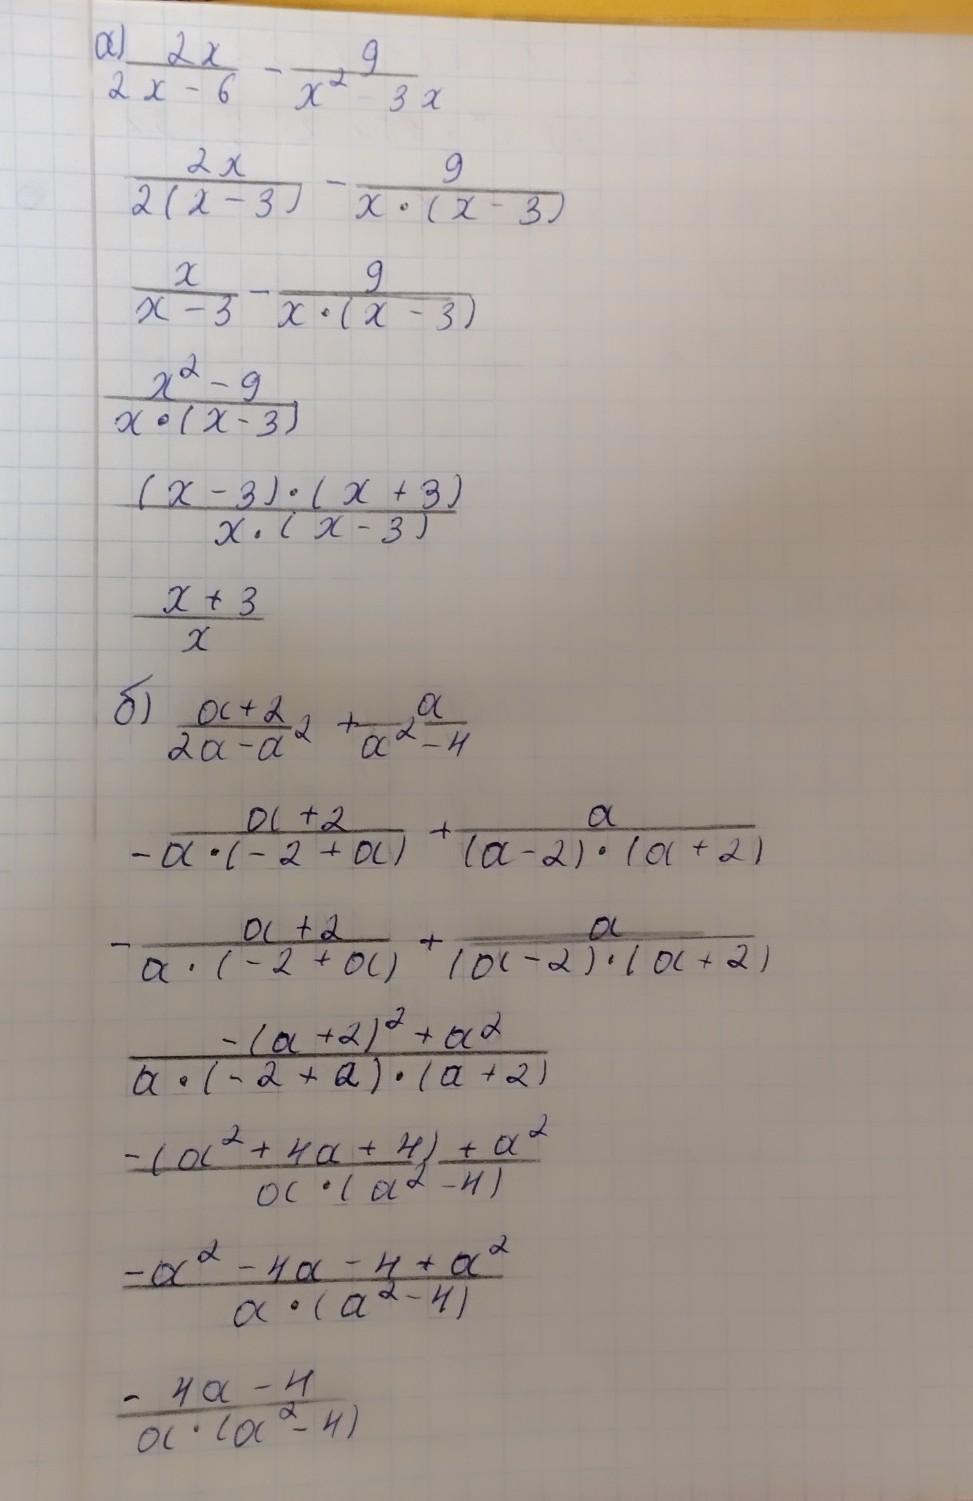 а) 2x/(2x-6) - 9/(x²-3x)
2x/(2(x-3)) - 9/(x·(x-3))
x/(x-3) - 9/(x·(x-3))
(x²-9)/(x·(x-3))
((x-3)·(x+3))/(x·(x-3))
(x+3)/x
б) (a+2)/(2a-a²) + a/(a²-4)
(a+2)/(-a·(-2+a)) + a/((a-2)·(a+2))
-(a+2)/(a·(-2+a)) + a/((a-2)·(a+2))
(-(a+2)²+a²)/(a·(-2+a)·(a+2))
(-(a²+4a+4)+a²)/(a·(a²-4))
(-a²-4a-4+a²)/(a·(a²-4))
(-4a-4)/(a·(a²-4))